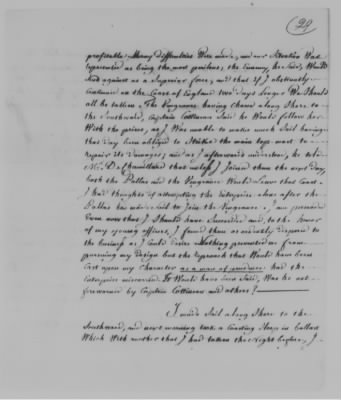 (29)
profitable. Many difficulties were made, and our situation was
represented as being the most perilous, the Enemy, he said, Would
Send against us a Superior force, and that if I obstinately
Continued on the Coast of England two days longer We Should
all be taken. The Vengeance having chased along Shore to
the Southward, Captain Cottineau Said he Would follow her
With the prizes, as I Was unable to make much Sail having
that day been obliged to Strike the main top mast to
repair its damages; and as I afterward understood, he told
M. De Chamillard that unless I Joined them the next day,
both the Pallas and the Vengeance Would Leave that Coast.
I had thoughts of attempting the Enterprise alone after the
Pallas had made Sail to Join the Vengeance. I am persuaded
Even now that I Should have Succeeded and, to the honor
of my young officers, I found them as ardently disposed to
the business as I Could desire. Nothing prevented me from
pursuing my design but the reproach that Would have been
Cast upon my Character as a man of prudence had the
Enterprise miscarried. It Would have been Said, Was he not
forewarned by Captain Cottineau and others?
I made Sail along Shore to the
Southward, and next morning took a Coasting Sloop in ballast
Which With another that I had taken the night before, I